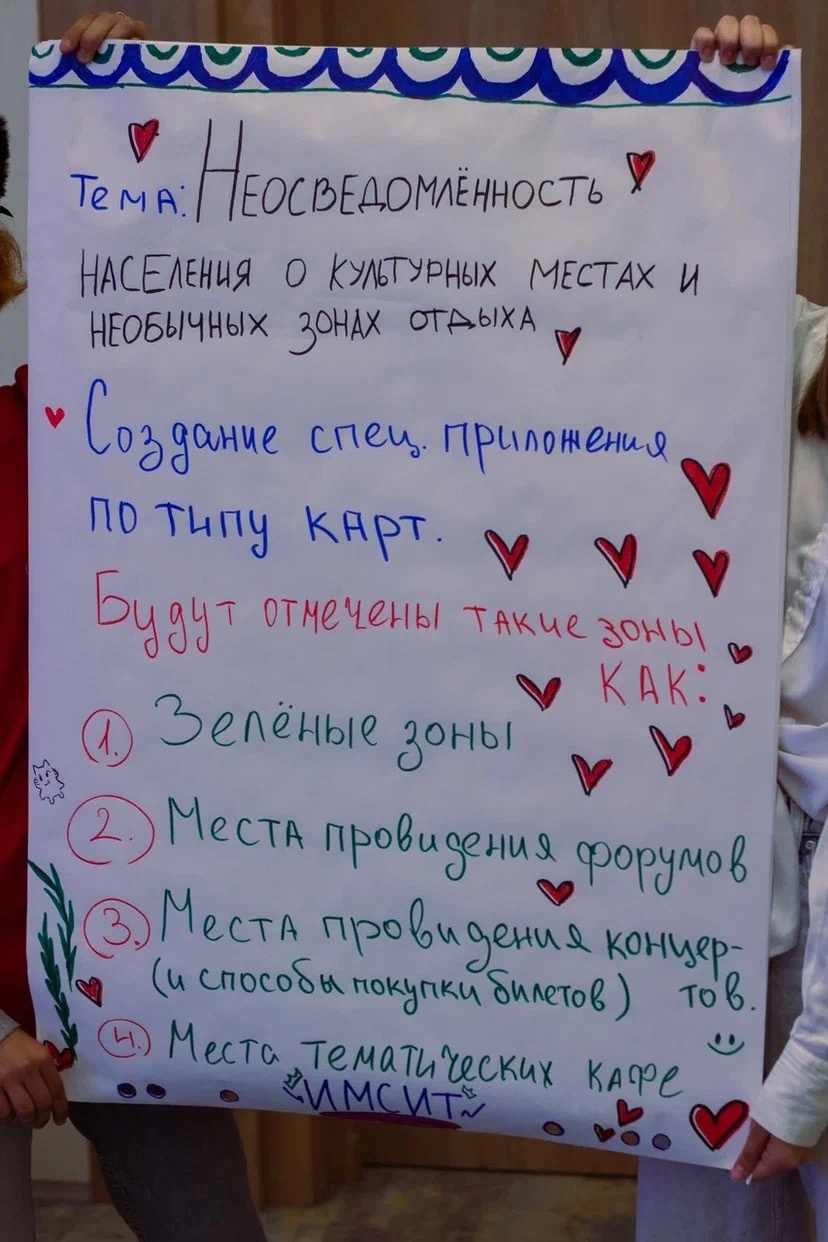 Тема: Неосведомлённость
населения о культурных местах и
необычных зонах отдыха
Создание спец. приложения
по типу карт.
Будут отмечены такие зоны
как:
1. Зелёные зоны
2. Места провидения форумов
3. Места провидения концер-
(и способы покупки билетов) тов.
4. Места тематических кафе
ИМСИТ